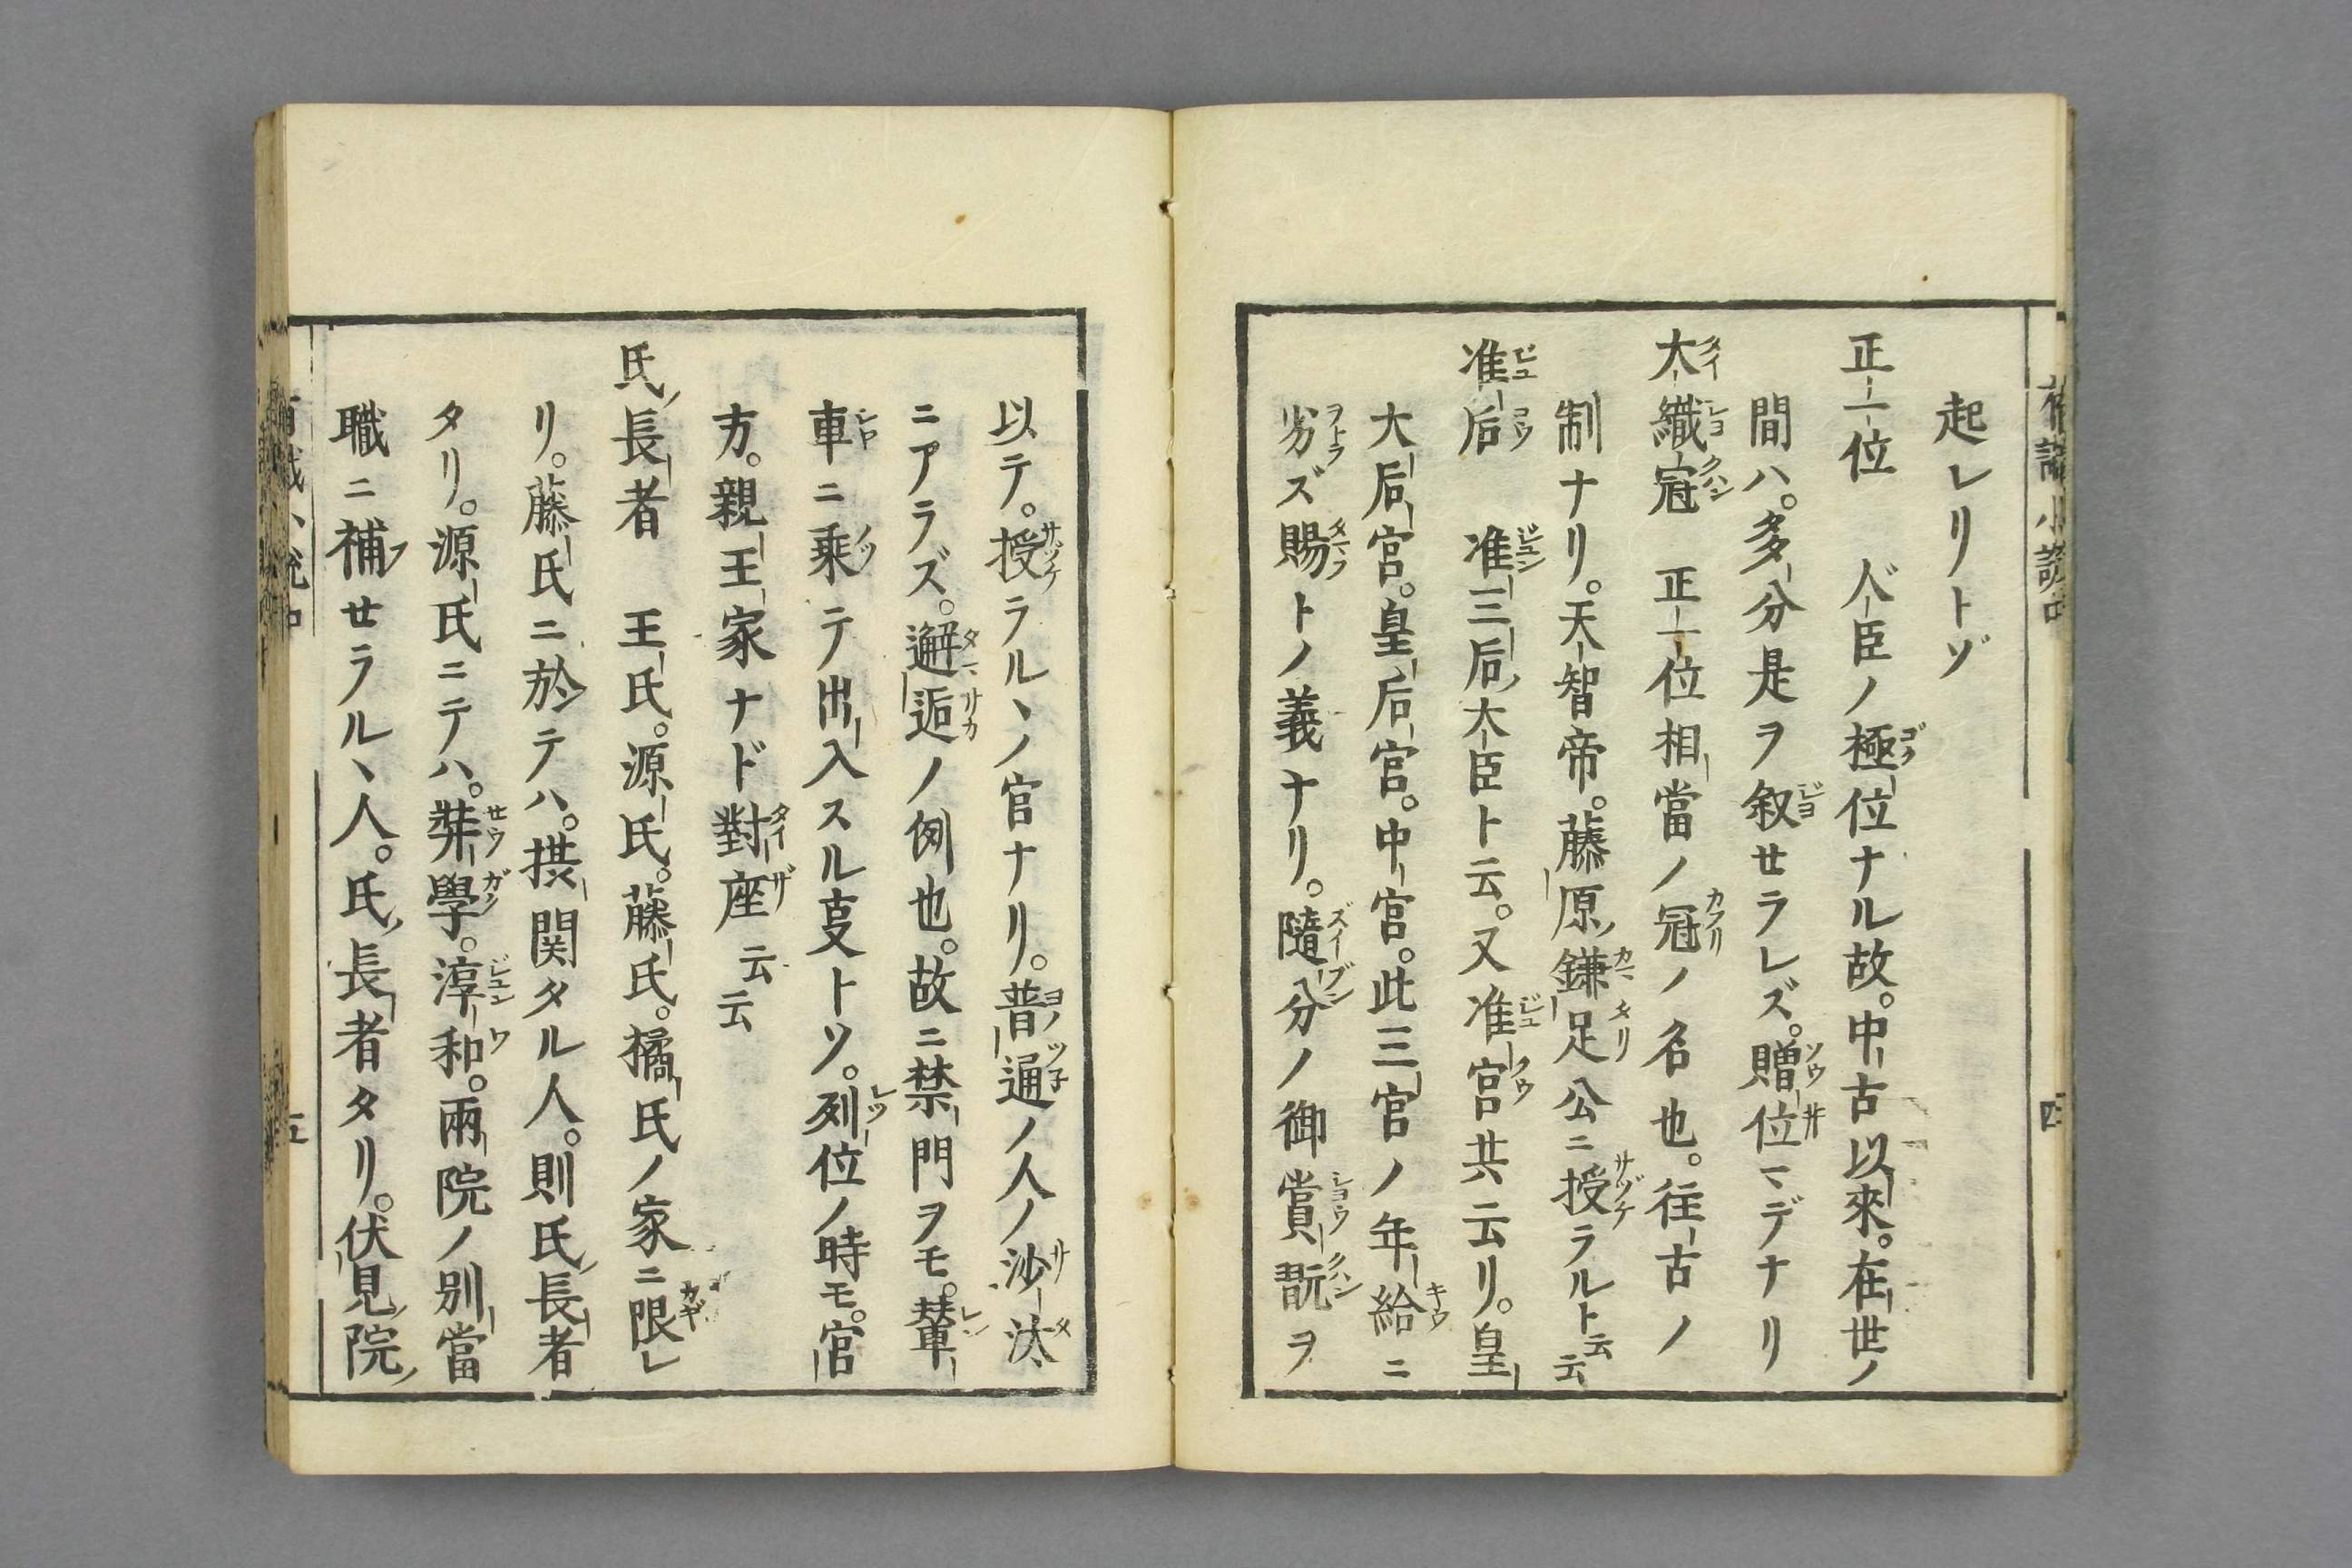 起レリトゾ
正一位　人臣ノ極位ナル故。中古以來。在世ノ
間ハ。多分是ヲ叙セラレズ。贈位マデナリ
大織冠　正一位相當ノ冠ノ名也。往古ノ
制ナリ。天智帝。藤原ノ鎌足公ニ授ラルト云云
准后　准三后ノ大臣ト云。又准宮共云リ。皇
大后宮。皇后宮。中宮。此三宮ノ年給ニ
劣ズ賜トノ義ナリ。隨分ノ御賞翫ヲ
以テ。授ラルヽノ官ナリ。普通ノ人ノ沙汰
ニアラズ。邂逅ノ例也。故ニ禁門ヲモ。輦
車ニ乗テ出入スル叓トソ。列位ノ時モ。官
方。親王家ナド對座云云
氏ノ長者　王氏。源氏。藤氏。橘氏ノ家ニ限レ
リ。藤氏ニ於テハ。摂関タル人。則氏ノ長者
タリ。源氏ニテハ。弉學。淳和。兩院ノ別當
職ニ補セラルヽ人。氏ノ長者タリ。伏見ノ院ノ
五